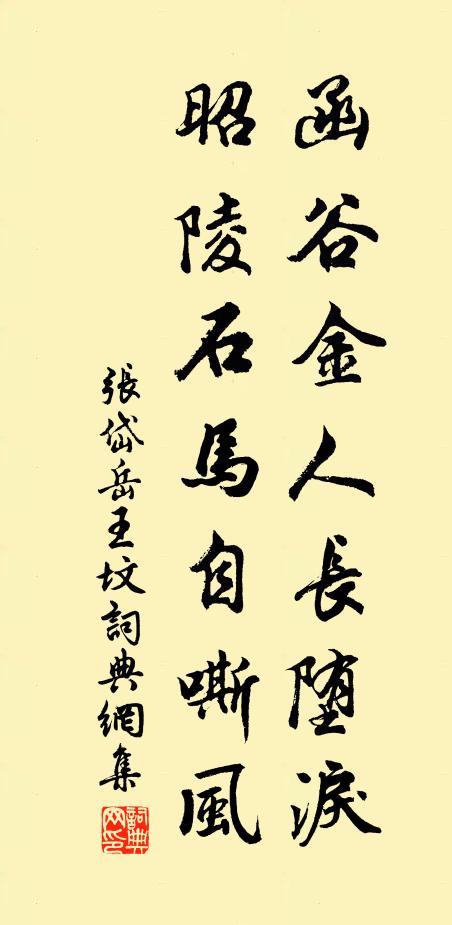 函谷金人長墮淚
昭陵石馬自嘶風
張岱岳王墳詞典網集
詞典網印